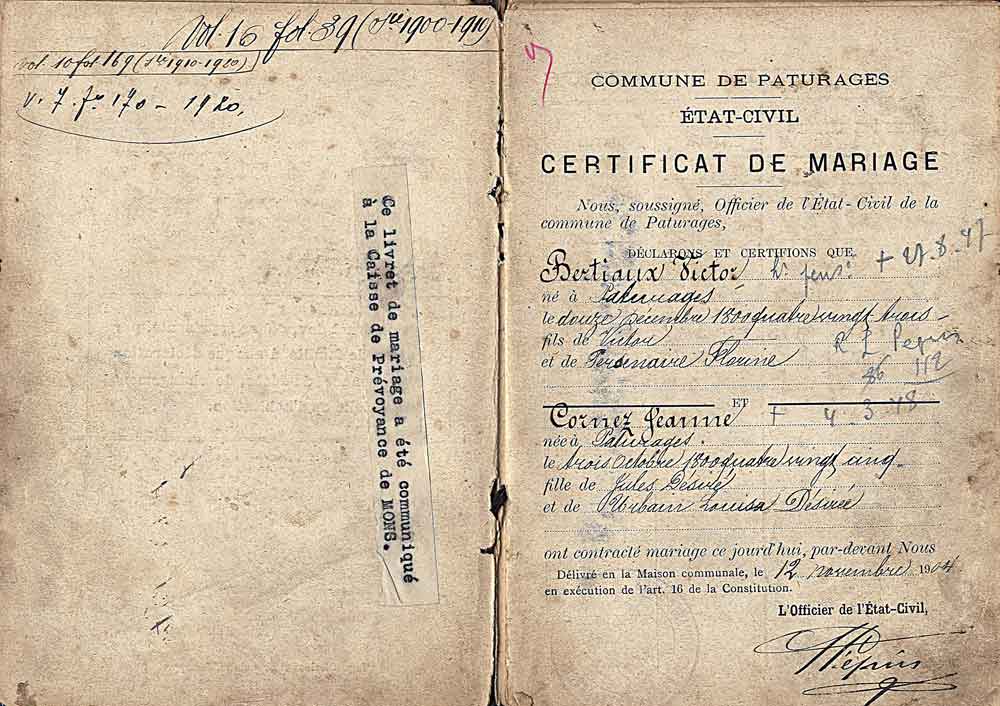 Vol. 16 fol. 39 (Sre 1900-1910)
Vol. 10 fol. 169 (Sre 1910-1920)
V. 7. fo 170 - 1920.
Ce livret de mariage a été communiqué
à la Caisse de Prévoyance de MONS.
COMMUNE DE PATURAGES
ÉTAT-CIVIL
CERTIFICAT DE MARIAGE
Nous, soussigné, Officier de l'État-Civil de la
commune de Paturages,
DÉCLARONS ET CERTIFIONS QUE
Bertiaux Victor + 27-8-47
né à Paturages
le douze Décembre 1800 quatre vingt trois
fils de Victor
et de Persenaire Florine
R L Pepin
86 112
ET
Cornez Jeanne + 4 3 48
née à Paturages.
le trois Octobre 1800 quatre vingt cinq
fille de Jules Désiré
et de Urbain Louisa Désirée
ont contracté mariage ce jourd'hui, par-devant Nous
Délivré en la Maison communale, le 12 novembre 1904
en exécution de l'art. 16 de la Constitution.
L'Officier de l'État-Civil,
Pépin